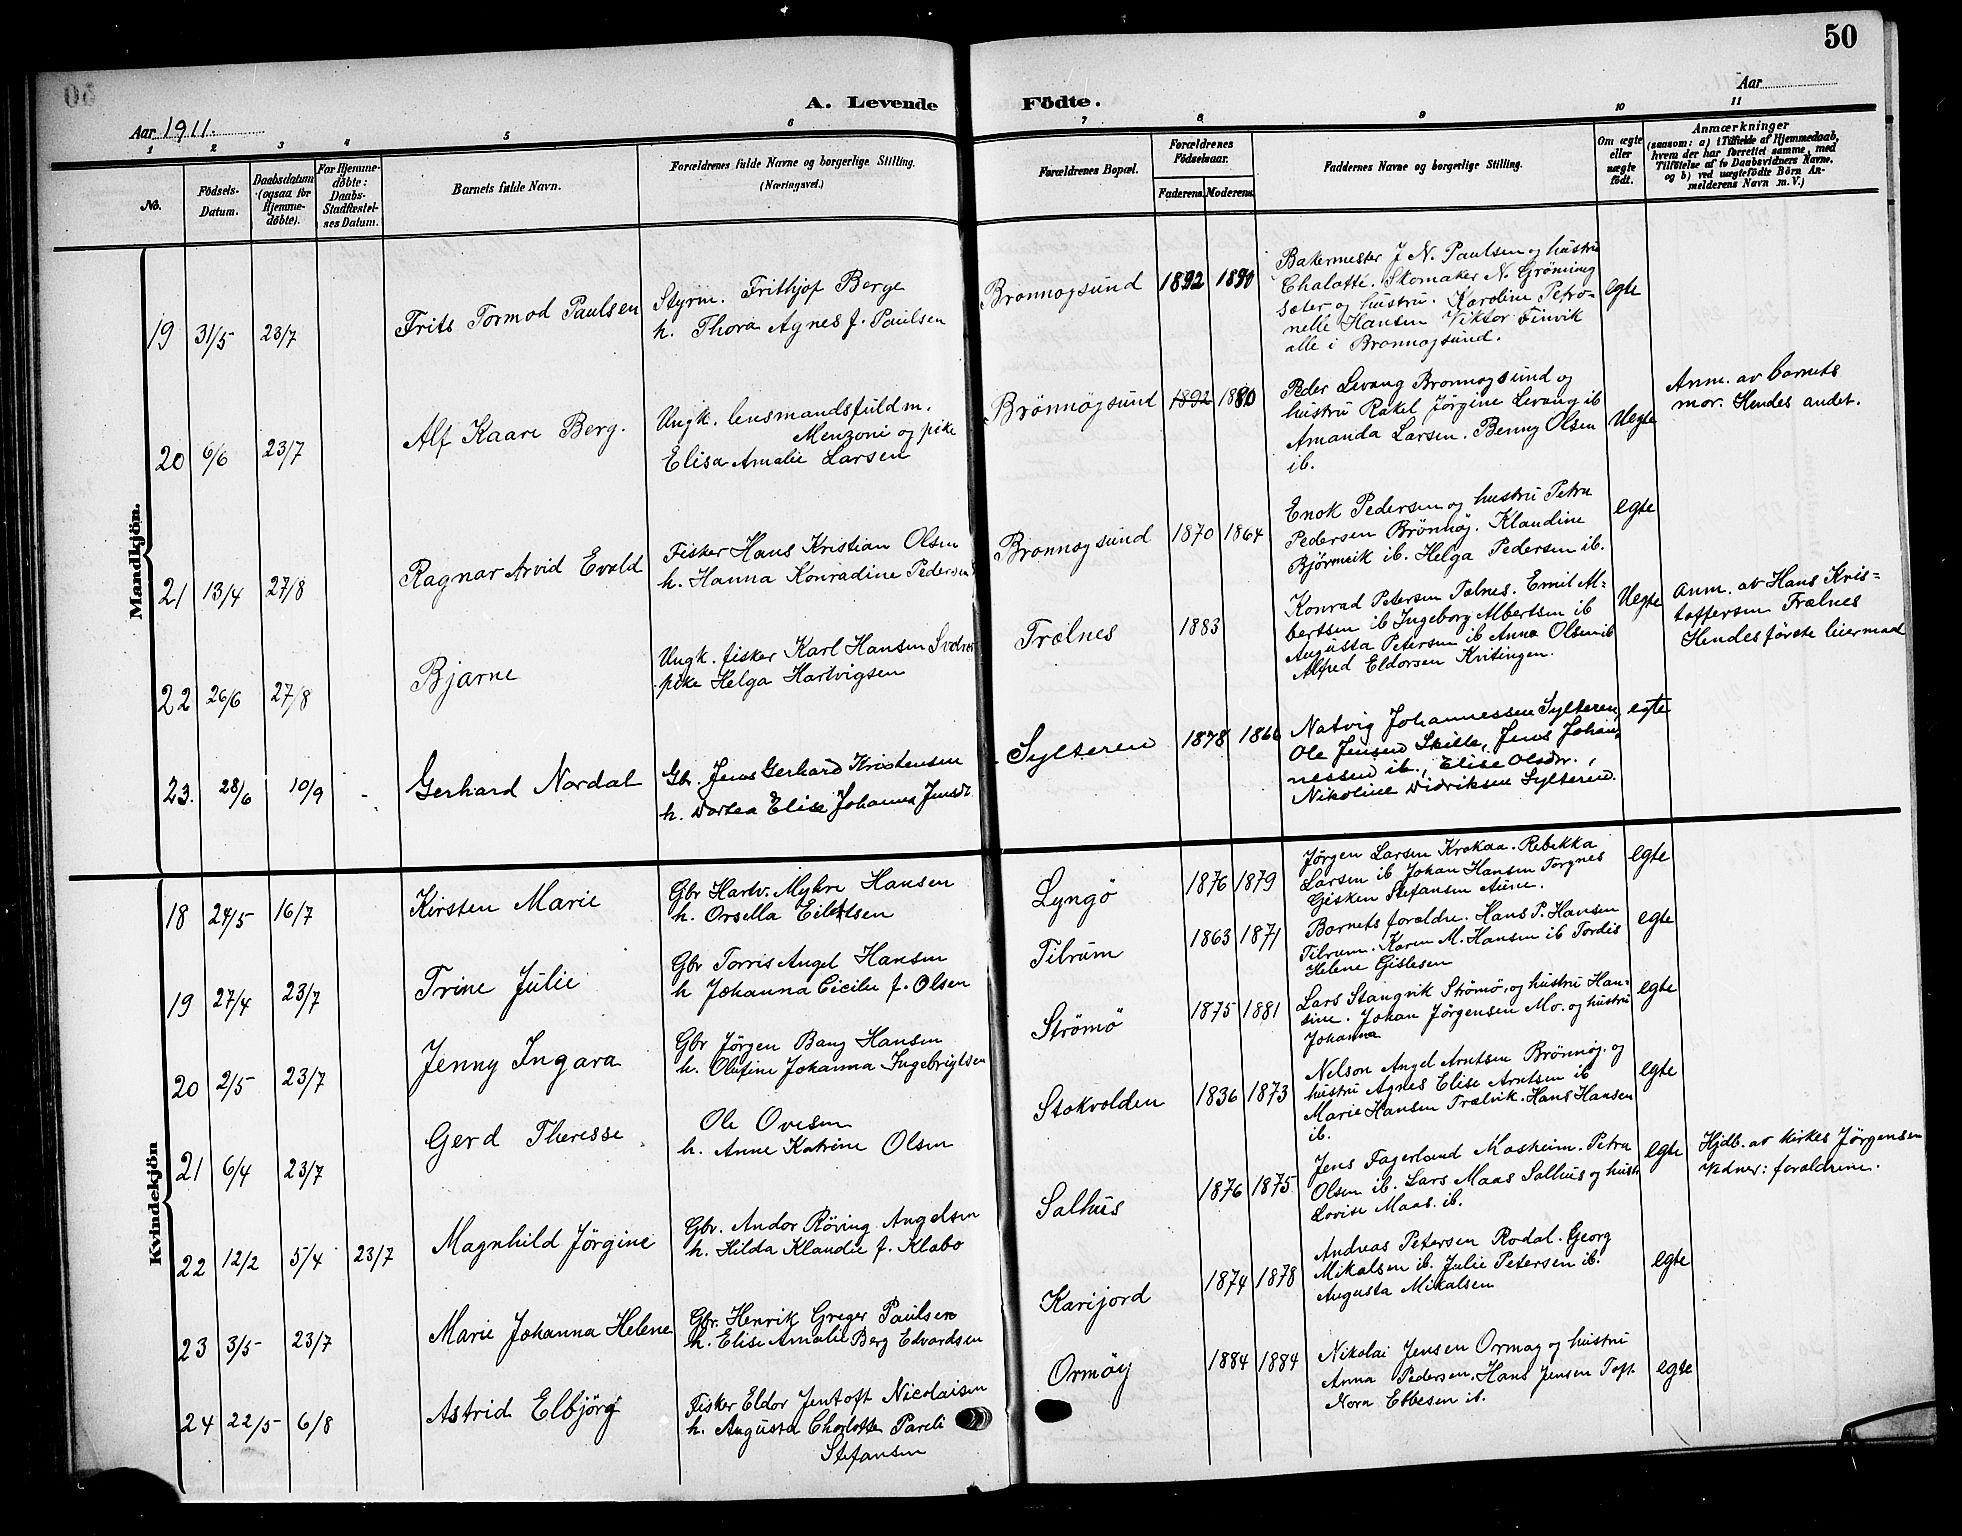 50
A. Levende Födte.
Aar 1911.
Aar
1 2 3 4 5 6 7 8 9 10 11
No.
Födsels-Datum.
Daabsdatum (ogsaa for Hjemmedöbte).
For Hjemmedöbte: Daabs-Stadfæstelses Datum.
Barnets fulde Navn.
Forældrenes fulde Navne og borgerlige Stilling. (Næringsvei.)
Forældrenes Bopæl.
Forældrenes Födselsaar.
Faderens. Moderens.
Faddernes Navne og borgerlige Stilling.
Om ægte eller uægte födt.
Anmærkninger
(saasom: a) i Tilfælde af Hjemmedaab, hvem der har forrettet samme, med Tilföielse af to Daabsvidners Navne. og b) ved uægtefödte Börn Anmelderens Navn m. V.)
Mandkjön.
19 31/5 23/7 Frits Tormod Paulsen
Styrm. Frithjof Berge
h. Thora Agnes f. Paulsen
Bronnogsund 1892 1890
Bakermester J N. Paulsen og hustru
Chalotte. Skomaker N. Gröning
sæter og hustru. Karoline Petro-
nelle Hansen Viktor Finvik
alle i Bronnogsund.
egte
20 6/6 23/7 Alf Kaare Berg.
Ungk. lensmandsfuldm.
Menzoni og pike
Elisa Amalie Larsen
Brönnögsund 1892 1880
Peder Levang Bronnogsund og
hustru Rakel Jørgine Levang ib
Amanda Larsen. Benny Olsen
ib.
Uegte
Anm. av barnets
mor. Hendes andet.
21 13/4 27/8 Ragnar Arvid Evald
Fisker Hans Kristian Olsen
h. Hanna Konradine Pedersen
Bronnogsund 1870 1864
Enok Pedersen og hustru Petra
Pedersen Brönnöy. Klaudine
Bjørnvik ib. Helga Pedersen ib.
egte
22 26/6 27/8 Bjarne
Ungk. fisker Karl Hansen
pike Helga Hartvigsen
Trælnes 1883
Konrad Petersen Tælnes. Emil Al-
bertsen ib Ingeborg Albertsen ib
Augusta Petersen ib Anna Olsen ib
Alfred Eldorsen Kvitingen.
Uegte
Anm. av Hans Kris-
toffersen Trælnes
Hendes første leiermaal
23. 28/6 10/9 - Gerhard Nordal
Gb. Jens Gerhard Kristensen
h. Dortea Elise Johanna Jensd.
Sylteren 1878 1866
Natvig Johannessen Sylteren,
Ole Jensen Skille, Jens Johan-
nessen ib., Elise Olsdr.,
Nikoline Didriksen Sylteren.
egte
Kvindekjön
18 24/5 16/7 Kirsten Marie
Gbr Hartv. Myhre Hansen
h. Orsella Eilertsen
Lyngö 1876 1879
Jørgen Larsen Krokaa. Rebekka
Larsen ib Johan Hansen Torgnes
Gisken Stefansen Aune.
egte
19 27/4 23/7 Trine Julie
Gbr Torris Angel Hansen
h Johanna Cicilie f. Olsen
Tilrum 1863 1871
Barnets forældre. Hans P. Hansen
Tilrum. Karen M. Hansen ib Tordis
Helene Gislesen
egte
20 2/5 23/7 Jenny Ingara
Gbr Jørgen Bang Hansen
h. Olufine Johanna Ingebrigtsen
Strömö 1875 1881
Lars Stangvik Strömö, og hustru Han-
sine. Johan Jørgensen Mo. og hustru
Johanna
egte
21 6/4 23/7 Gerd Theresse
Ole Ovesen
h. Anne Katrine Olsen
Stokvolden 1836 1873
Nelson Angel Arntsen Brönnöy. og
hustru Agnes Elise Arntsen ib
Marie Hansen Trælvik. Hans Hansen
ib.
egte
22 12/2 5/4 23/7 Magnhild Jörgine
Gbr. Andor Röving Angelsen
h. Hilda Klaudie f. Klabo
Salhus 1876 1875
Jens Fagerland Mosheim. Petra
Olsen ib. Lars Maas Salhus og hustr.
Lovise Maas. ib.
egte
Hjdb. av kirkes. Jörgensen
Vidner: forældrene.
23 3/5 23/7 Marie Johanna Helene
Gbr. Henrik Greger Paulsen
h. Elise Amalie Berg Edvardsen
Karijord 1874 1878
Andreas Petersen Rodal. Georg
Mikalsen ib. Julie Petersen ib.
Augusta Mikalsen
egte
24 22/5 6/8 Astrid Elbjörg
Fisker Eldor Jentoft Nicolaisen
h. Augusta Charlotte Pareli
Stefansen
Ormöy 1884 1884
Nikolai Jensen Ormøy og hustru
Anna Pedersen. Hans Jensen Toft
Nora Ebbesen ib.
egte